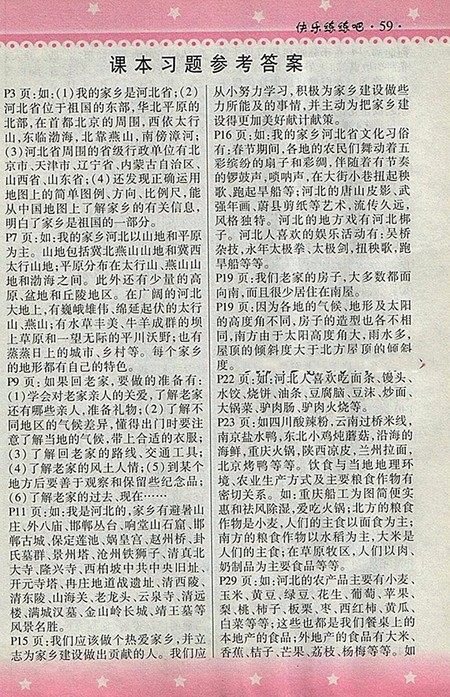 快乐练练吧·59·
课本习题参考答案
P3 页:如:(1)我的家乡是河北省;(2)
河北省位于祖国的东部,华北平原的
北部,在首都北京的周围,西依太行
山,东临渤海,北靠燕山,南傍漳河;
(3)河北省周围的省级行政单位有北
京市、天津市、辽宁省、内蒙古自治区、
山西省、山东省;(4)还发现正确运用
地图上的简单图例、方向、比例尺,能
从中国地图上了解家乡的有关信息,
明白了家乡是祖国的一部分。
P7 页:如:我的家乡河北以山地和平原
为主。山地包括冀北燕山山地和冀西
太行山地;平原分布在太行山、燕山山
地和渤海之间。此外还有少量的高
原、盆地和丘陵地区。在广阔的河北
大地上,有巍峨雄伟、绵延起伏的太行
山、燕山;有水草丰美、牛羊成群的坝
上草原和一望无际的平川沃野;也有
蒸蒸日上的城市、乡村等。每个家乡
的地形都有自己的特色。
P9 页:如果回老家,要做的准备有:
(1)学会对老家亲人的关爱,了解老家
还有哪些亲人,准备礼物;(2)了解不
同地区的气候差异,懂得出门时要注
意了解当地的气候,带上合适的衣服;
(3)了解回老家的路线、交通工具;
(4)了解老家的风土人情;(5)到某个
地方后要善于观察和保留些纪念品;
(6)了解老家的过去、现在……
P11 页:如:我是河北的,家乡有避暑山
庄、外八庙、邯郸丛台、响堂山石窟、邯
郸古城、保定莲池、娲皇宫、赵州桥、封
氏墓群、景州塔、沧州铁狮子、清真北
大寺、隆兴寺、西柏坡中共中央旧址、
开元寺塔、冉庄地道战遗址、清西陵、
清东陵、山海关、老龙头、云泉寺、清远
楼、满城汉墓、金山岭长城、靖王墓等
风景名胜。
P15 页:我们应该做个热爱家乡,并立
志为家乡建设做出贡献的人。我们应
从小努力学习,积极为家乡建设做些
力所能及的事情,并主动为把家乡建
设得更加美好献计献策。
P16 页:如:我的家乡河北省文化习俗
有:春节期间,各地的农民们舞动着五
彩缤纷的扇子和彩绸,伴随着有节奏
的锣鼓声,唢呐声,在大街小巷扭起秧
歌、跑起旱船等;河北的唐山皮影、武
强年画、蔚县剪纸等艺术,流传久远,
风格独特。河北的地方戏有河北梆
子。河北人喜欢的娱乐活动有:吴桥
杂技,永年太极拳、太极剑,扭秧歌,跑
旱船等等。
P19 页:我们老家的房子,大多数都面
向南,而且很少居住在南屋。
P19 页:因为各地的气候、地形及太阳
的高度角不同,房子的造型也各不相
同,南方由于太阳高度角大,雨水多,
屋顶的倾斜度大于北方屋顶的倾斜
度。
P22 页:如:河北人喜欢吃面条、馒头、
水饺、烧饼、油条、豆腐脑、豆沫、炒面、
大锅菜、驴肉肠、驴肉火烧等。
P23 页:如四川酸辣粉,云南过桥米线,
南京盐水鸭,东北小鸡炖蘑菇,沿海的
海鲜,重庆火锅,陕西凉皮,兰州拉面,
北京烤鸭等等。饮食与当地地理环
境、农业生产方式及主要粮食作物有
密切关系。如:重庆船工为图简便实
惠和祛风除湿,爱吃火锅;北方的粮食
作物是小麦,人们的主食以面食为主;
南方的粮食作物以水稻为主,大米是
人们的主食;在草原牧区,人们以肉、
奶制品为主要食品等等。
P29 页:如:河北的农产品主要有小麦、
玉米、黄豆、绿豆、花生、葡萄、苹果
梨、桃、柿子、板栗、枣、西红柿、黄瓜、
白菜等等;这些也都是我们餐桌上的
本地产的食品;外地产的食品有大米、
香蕉、桔子、芒果、荔枝、杨梅等等。如